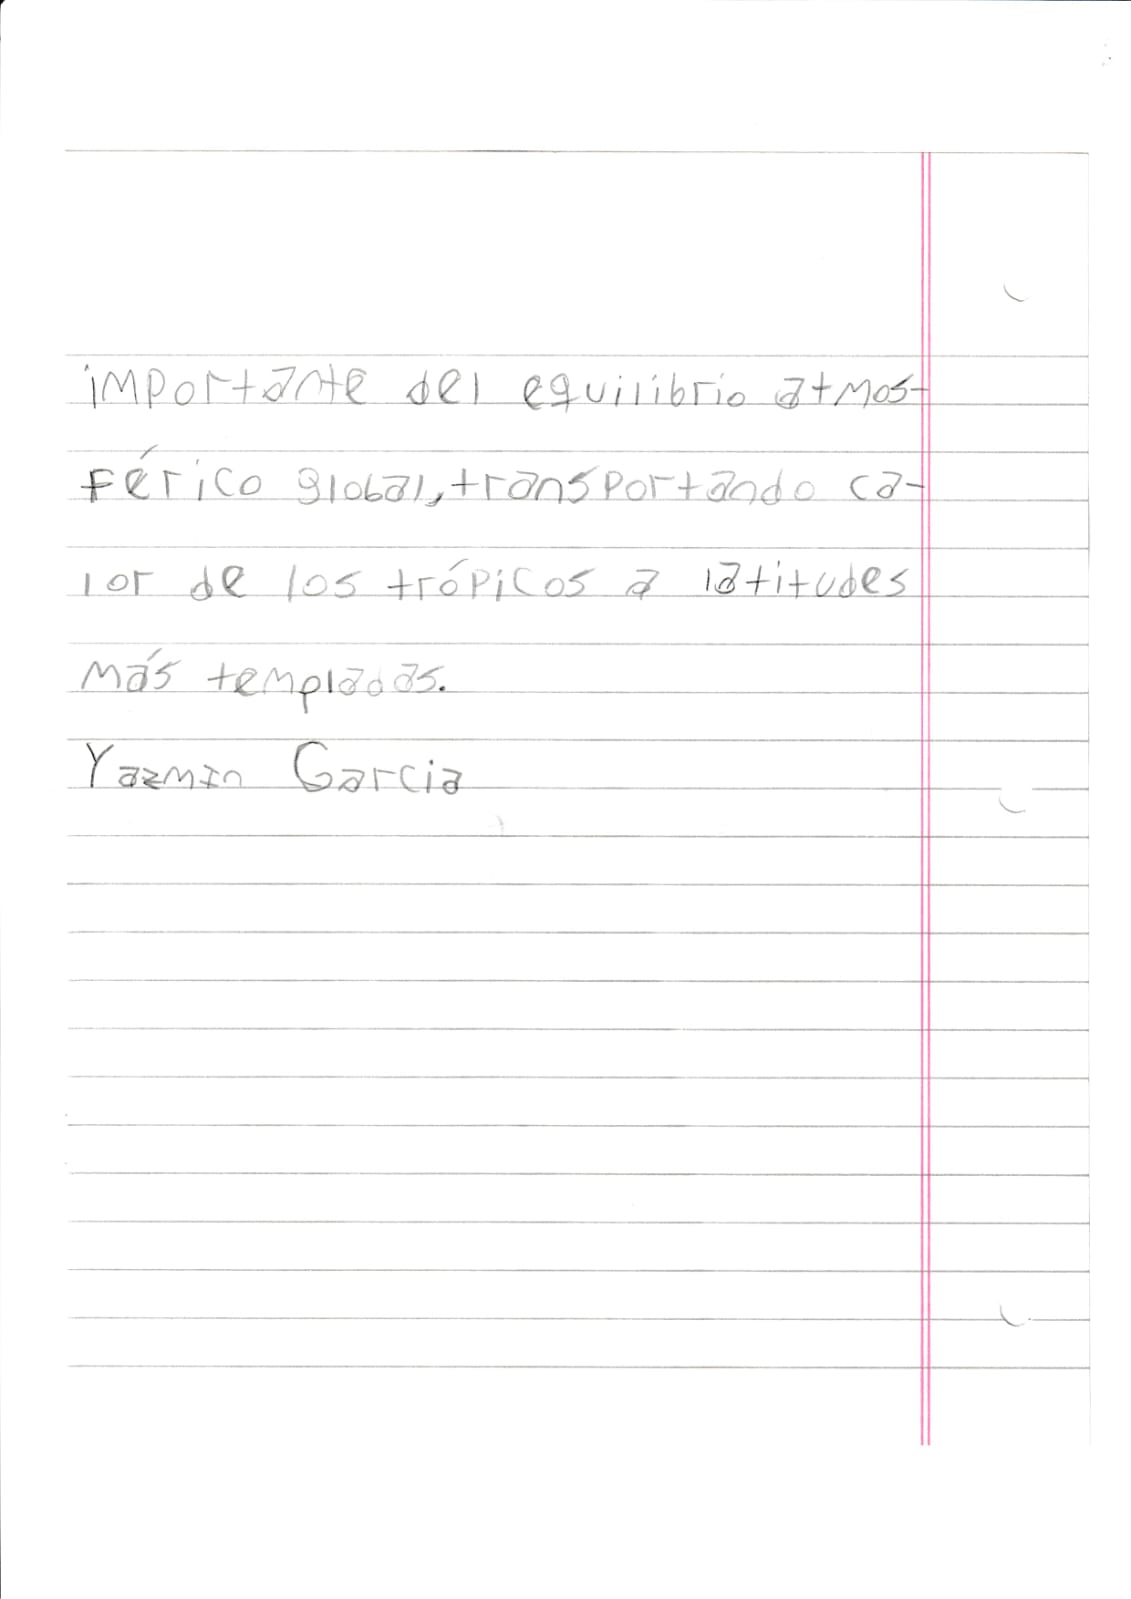 importante del equilibrio atmos-
férico global, transportando ca-
lor de los trópicos a latitudes
más templadas.
Yazmin Garcia